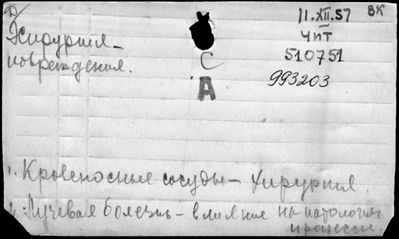 11.XII.57 ВК
Д
ЧПТ
Хирургия –
510751
повреждения.
С
993203
А
1. Кровеносные сосуды – хирургия.
2. Лучевая болезнь – влияние на патологич.
процессы